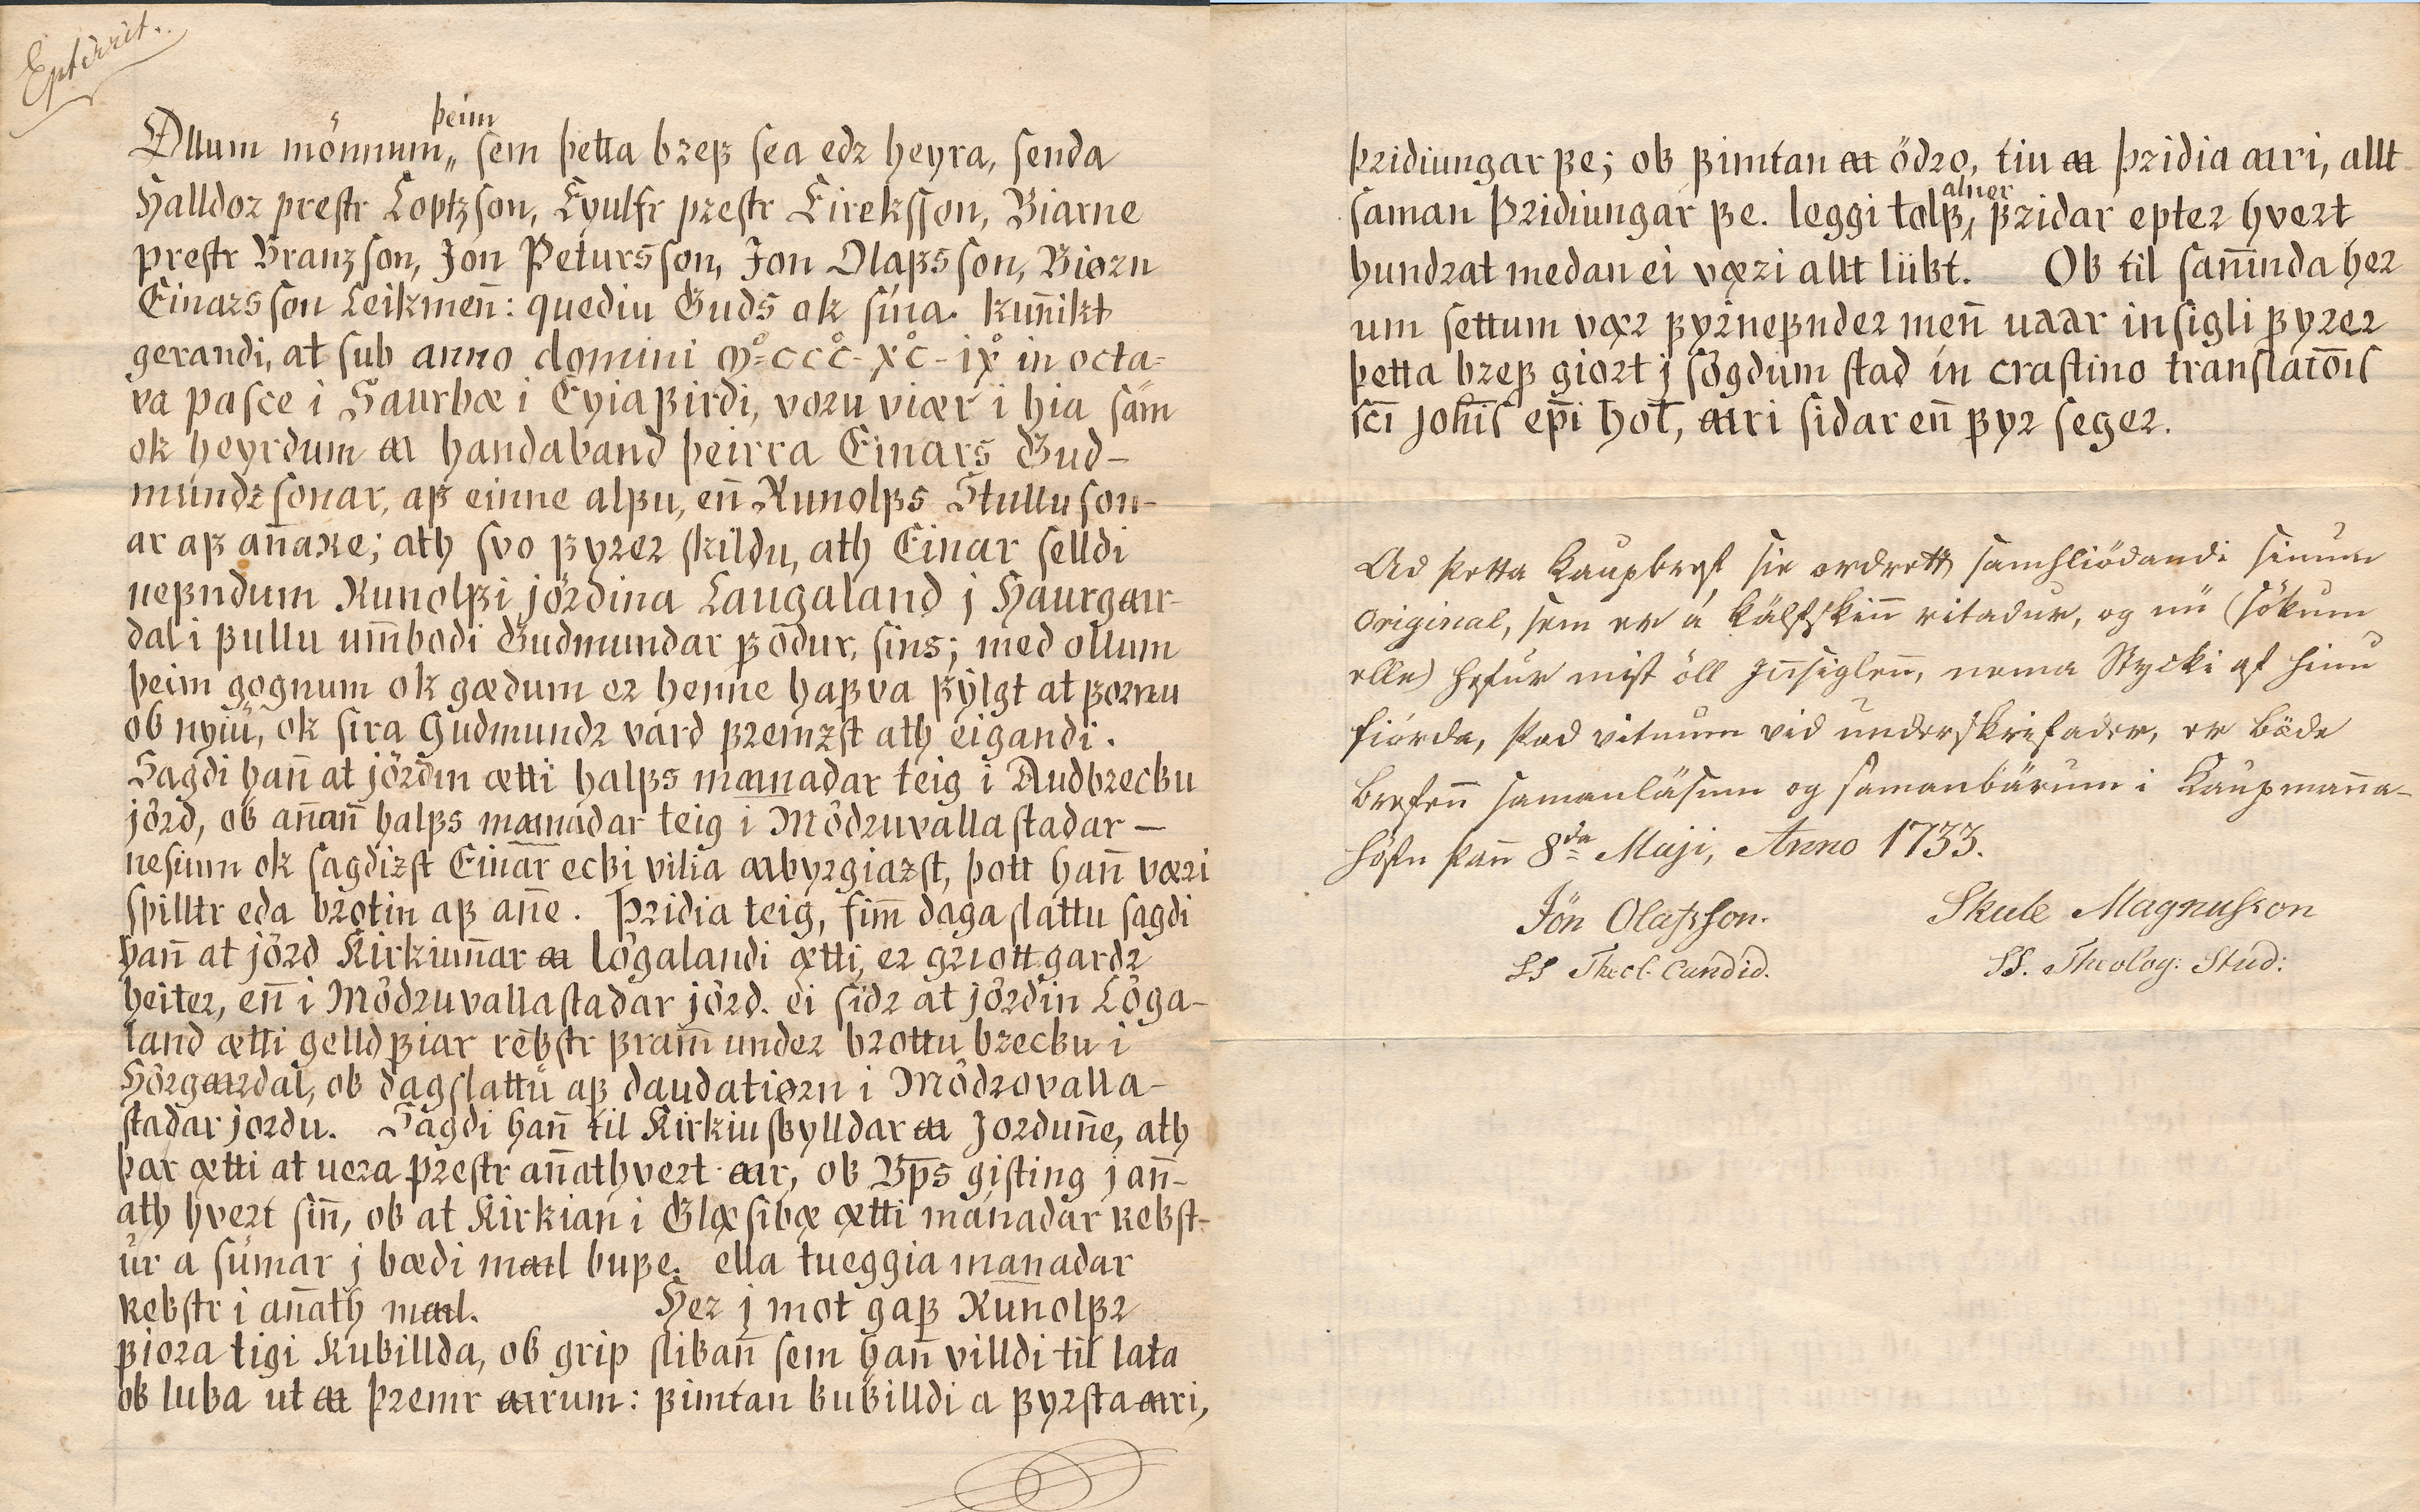 Epterrit.
þeim
Ollum mönnum„ sem þetta bꝛeꝼ sea edꝛ heyra, senda
Halldoꝛ prestr Loptzson, Eyulfr pꝛestr Eireksson, Biarne
prestr Branzson, Jon Petursson, Jon Olaꝼsson, Biøꝛn
Einaꝛsson Leikmen̄: quediu Guds ok sina. kun̄ikt
gerandi, at sub anno domini M°-ccc°-xc°-ix° in octa-
va pasce i Saurbæ i Eyiaꝼirdi, voꝛu viær i hia sām
ok heyrdum ꜳ handaband þeirra Einars Gud-
mundzsonar, aꝼ einne alꝼu, en̄ Runolꝼs Stullu son-
ar aꝼ an̄aʀe; ath svo ꝼyꝛeꝛ skildu, ath Einar selldi
neꝼndum Runolꝼi jördina Laugaland j Haurgꜳr-
dal i ꝼullu um̄bodi Gudmundar ꝼödur, sins; med ollum
þeim gognum ok gædum eꝛ henne haꝼva ꝼylgt at ꝼoꝛnu
ok nyiu, ok sira Gudmundꝛ vard ꝼremzst ath eigandi.
Sagdi han̄ at jördin ætti halꝼs mꜳnadar teig i Audbꝛecku
jörd, ok an̄an̄ halꝼs mꜳnadar teig i Mödꝛuvallastadar –
nesinn ok sagdizst Einar ecki vilia ꜳbyꝛgiazst, þott han̄ væꝛi
spilltr eda bꝛotin aꝼ an̄e. Þꝛidia teig, fim̄ daga slattu sagdi
han̄ at jörd Kirkiun̄ar ꜳ lögalandi ætti, eꝛ gꝛiott gardꝛ
heiteꝛ, en̄ i Mödꝛuvallastadar jörd. ei sidꝛ at jördin Löga-
land ætti gelldꝼiar rekstr ꝼram̄ undeꝛ bꝛottu bꝛecku i
Hörgꜳꝛdal, ok dagslattu aꝼ daudatiøꝛn i Mödꝛovalla-
stadar joꝛdu. Sagdi han̄ til Kirkiu skylldar ꜳ Joꝛdun̄e, ath
þar ætti at ueꝛa pꝛestr an̄athveꝛt ꜳr, ok Bp̄s gisting j an̄-
ath hveꝛt sin̄, ok at Kirkian i Glæsibæ ætti mánadar ʀekst-
ur a sumar j bædi mꜳl buꝼe. ella tueggia manadar
ʀekstr i an̄ath mꜳl. Heꝛ j mot gaꝼ Runolꝼꝛ
ꝼioꝛa tigi Kukillda, ok grip slikan̄ sem han̄ villdi til lata
ok luka ut ꜳ þꝛemr ꜳrum: ꝼimtan kukilldi a ꝼyꝛsta ꜳri,
þꝛidiungar ꝼe; ok ꝼimtan ꜳ ödꝛo, tiu ꜳ þꝛidia ꜳri, allt
alner
saman þꝛidiungar ꝼe. leggi tolꝼ, ꝼꝛidar epteꝛ hveꝛt
hundꝛat medan ei væꝛi allt lükt. Ok til san̄inda heꝛ
um settum væꝛ ꝼyꝛneꝼndeꝛ men̄ uꜳr insigli ꝼyꝛeꝛ
þetta bꝛeꝼ gioꝛt j sögdum stad in crastino translatōis
sc̄i joh̄is ep̄i hol̄, ꜳri sidar en̄ ꝼyꝛ segeꝛ.
Ad þetta Kaupbref sie ordrett samhliödandi sinum
Original, sem er á Kälfskinn ritadur, og nü (sökum
elle) hefur mist öll Jn̄siglenn, nema Stycki af hinu
fiórda, þad vitnum vid underskrifader, er bæde
brefenn samanläsum og samanbärum i Kaupman̄a-
höfn þan̄ 8da Maji, Anno 1733.
Jön Olafsson. Skule Magnusson
SS Theol. Candid. SS. Theolog: Stud: